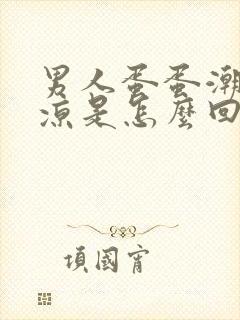 男人蛋蛋潮
凉是怎麼回
項國宵